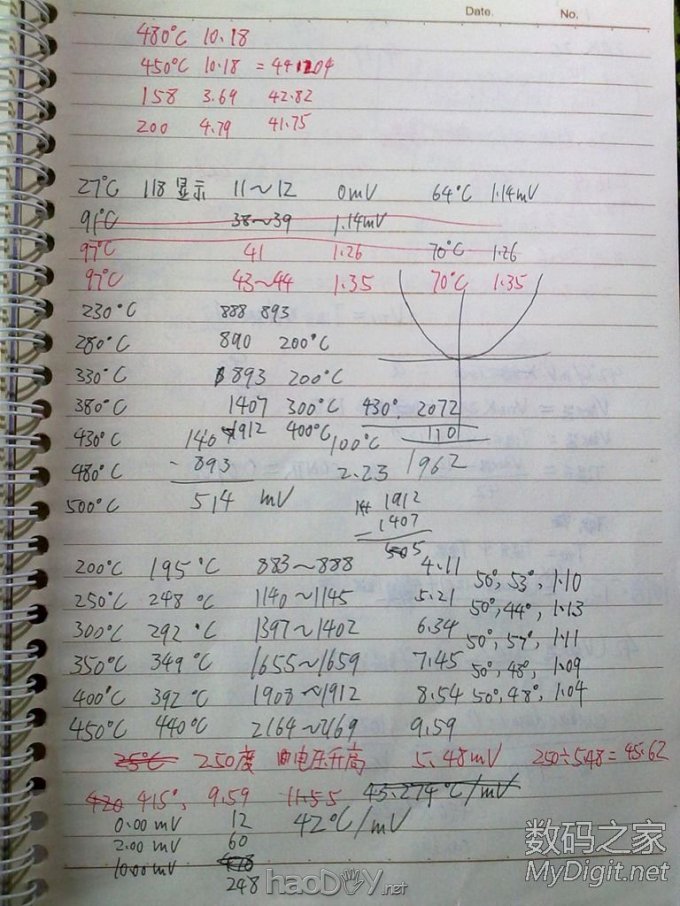 Date. No.
480°C 10.18
450°C 10.18 = 44.204
158 3.69 42.82
200 4.79 41.75
27°C 118显示 11~12 0mV 64°C 1.14mV
91°C 38~39 1.14mV
97°C 41 1.26 70°C 1.26
97°C 43~44 1.35 70°C 1.35
230°C 888 893
280°C 890 200°C
330°C 893 200°C
380°C 1407 300°C 430° 2072
430°C 140 1912 400°C 100°C 110
480°C - 893 2.23 1962
500°C 514 mV 1912
1407
505
200°C 195°C 883~888 4.11 50°, 53°, 1.10
250°C 248°C 1140~1145 5.21 50°, 44°, 1.13
300°C 292°C 1397~1402 6.34 50°, 57°, 1.11
350°C 349°C 1655~1659 7.45 50°, 48°, 1.09
400°C 392°C 1908~1912 8.54 50°, 48°, 1.04
450°C 440°C 2164~2169 9.59
25°C 250度 电压升高 5.48mV 250÷5.48=45.62
420 415°, 9.59 11.55 45.274°C/mV
0.00 mV 12 42°C/mV
2.00 mV 60
10.00 mV
248
数码之家
MyDigit.net
haoDIY.net